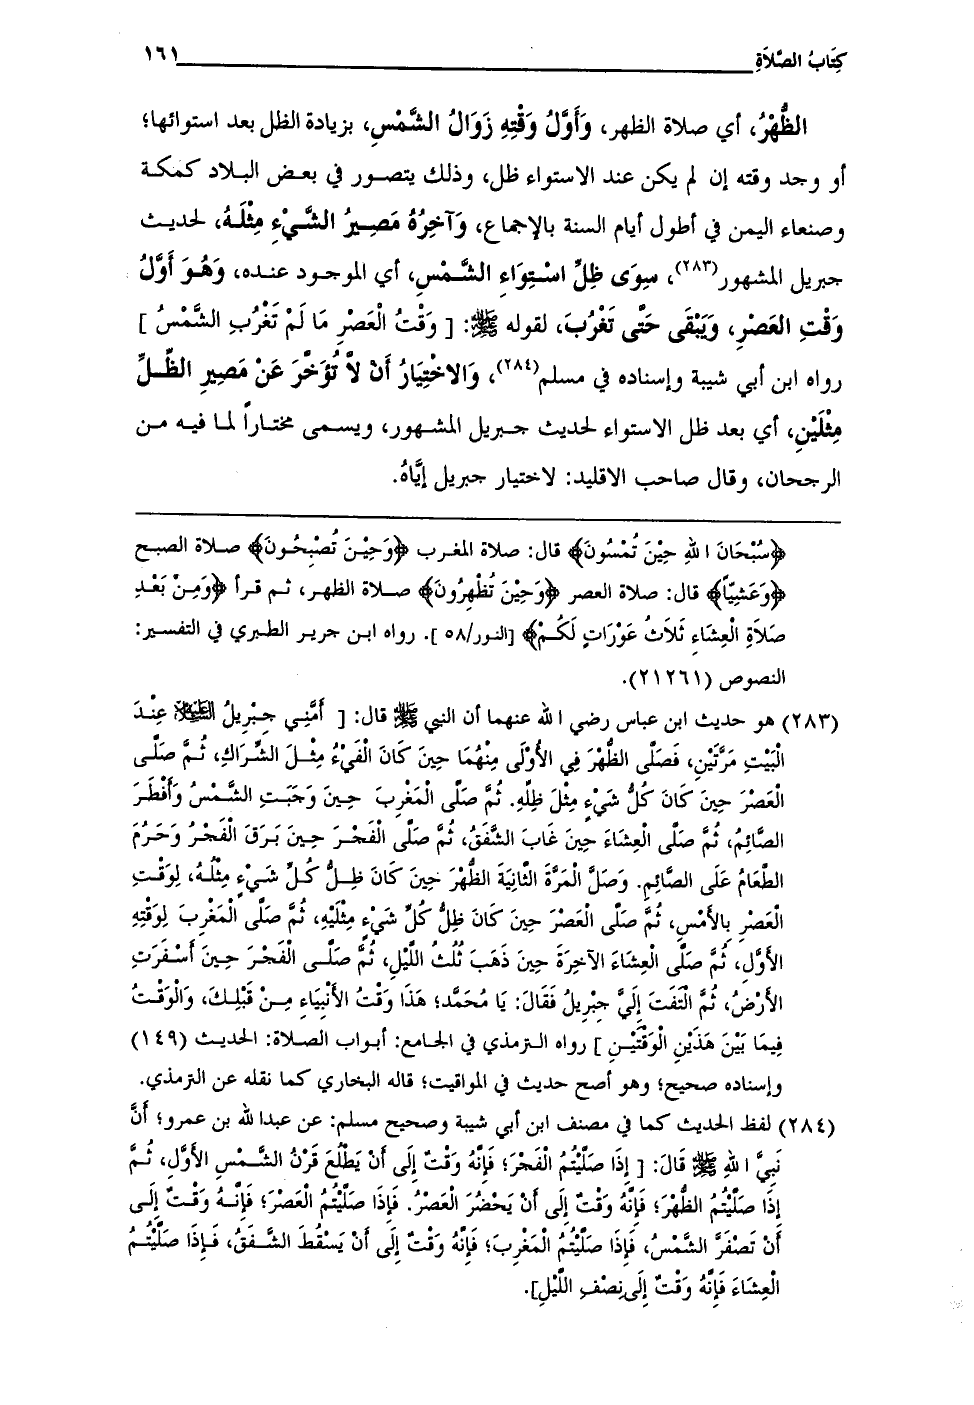 كِتَابُ الصَّلاَةِ ١٦١
الظُّهْرُ، أي صلاة الظهر، وَأَوَّلُ وَقْتِهِ زَوَالُ الشَّمْسِ، بزيادة الظل بعد استوائها؛
أو وجد وقته إن لم يكن عند الاستواء ظل، وذلك يتصور في بعض البلاد كمكة
وصنعاء اليمن في أطول أيام السنة بالإجماع، وَآخِرُهُ مَصِيرُ الشَّيْءِ مِثْلَهُ، لحديث
جبريل المشهور(٢٨٣)، سِوَى ظِلِّ اسْتِوَاءِ الشَّمْسِ، أي الموجود عنده، وَهُوَ أَوَّلُ
وَقْتِ العَصْرِ، وَيَبْقَى حَتَّى تَغْرُبَ، لقوله ﷺ: [ وَقْتُ الْعَصْرِ مَا لَمْ تَغْرُبِ الشَّمْسُ ]
رواه ابن أبي شيبة وإسناده في مسلم(٢٨٤)، وَالاخْتِيَارُ أَنْ لاَّ تُؤَخَّرَ عَنْ مَصِيرِ الظِّلِّ
مِثْلَيْنِ، أي بعد ظل الاستواء لحديث جبريل المشهور، ويسمى مختاراً لما فيه من
الرجحان، وقال صاحب الاقليد: لاختيار جبريل إيَّاهُ.
﴿سُبْحَانَ اللهِ حِيْنَ تُمْسُونَ﴾ قال: صلاة المغرب ﴿وَحِيْنَ تُصْبِحُونَ﴾ صلاة الصبح
﴿وَعَشِيّاً﴾ قال: صلاة العصر ﴿وَحِيْنَ تُظْهِرُونَ﴾ صلاة الظهر، ثم قرأ ﴿وَمِنْ بَعْدِ
صَلاَةِ الْعِشَاءِ ثَلاَثُ عَوْرَاتٍ لَكُمْ﴾ [النور/٥٨ ]. رواه ابن جرير الطبري في التفسير:
النصوص (٢١٢٦١).
(٢٨٣) هو حديث ابن عباس رضي الله عنهما أن النبي ﷺ قال: [ أَمَّنِي جِبْرِيلُ الْعَلَيْهِ السَّلَامُ عِنْدَ
الْبَيْتِ مَرَّتَيْنِ، فَصَلَّى الظُّهْرَ فِي الأُوْلَى مِنْهُمَا حِينَ كَانَ الْفَيْءُ مِثْلَ الشِّرَاكِ، ثُمَّ صَلَّى
الْعَصْرَ حِينَ كَانَ كُلُّ شَيْءٍ مِثْلَ ظِلِّهِ. ثُمَّ صَلَّى الْمَغْرِبَ حِينَ وَجَبَتِ الشَّمْسُ وَأَفْطَرَ
الصَّائِمُ، ثُمَّ صَلَّى الْعِشَاءَ حِينَ غَابَ الشَّفَقُ، ثُمَّ صَلَّى الْفَجْرَ حِينَ بَرَقَ الْفَجْرُ وَحَرُمَ
الطَّعَامُ عَلَى الصَّائِمِ. وَصَلَّ الْمَرَّةَ الثَّانِيَةَ الظُّهْرَ حِينَ كَانَ ظِلُّ كُلِّ شَيْءٍ مِثْلُهُ، لِوَقْتِ
الْعَصْرِ بِالأَمْسِ، ثُمَّ صَلَّى الْعَصْرَ حِينَ كَانَ ظِلُّ كُلِّ شَيْءٍ مِثْلَيْهِ، ثُمَّ صَلَّى الْمَغْرِبَ لِوَقْتِهِ
الأَوَّلِ، ثُمَّ صَلَّى الْعِشَاءَ الآخِرَةَ حِينَ ذَهَبَ ثُلُثُ اللَّيْلِ، ثُمَّ صَلَّى الْفَجْرَ حِينَ أَسْفَرَتِ
الأَرْضُ، ثُمَّ الْتَفَتَ إِلَيَّ جِبْرِيلُ فَقَالَ: يَا مُحَمَّد؛ هَذَا وَقْتُ الأَنْبِيَاءِ مِنْ قَبْلِكَ، وَالْوَقْتُ
فِيمَا بَيْنَ هَذَيْنِ الْوَقْتَيْنِ ] رواه الترمذي في الجامع: أبواب الصلاة: الحديث (١٤٩)
وإسناده صحيح؛ وهو أصح حديث في المواقيت؛ قاله البخاري كما نقله عن الترمذي.
(٢٨٤) لفظ الحديث كما في مصنف ابن أبي شيبة وصحيح مسلم: عن عبدالله بن عمرو؛ أَنَّ
نَبِيَّ اللهِ ﷺ قَالَ: [ إِذَا صَلَّيْتُمُ الْفَجْرَ؛ فَإِنَّهُ وَقْتٌ إِلَى أَنْ يَطْلُعَ قَرْنُ الشَّمْسِ الأَوَّلِ، ثُمَّ
إِذَا صَلَّيْتُمُ الظُّهْرَ؛ فَإِنَّهُ وَقْتٌ إِلَى أَنْ يَحْضُرَ الْعَصْرُ. فَإِذَا صَلَّيْتُمُ الْعَصْرَ؛ فَإِنَّهُ وَقْتٌ إِلَى
أَنْ تَصْفَرَّ الشَّمْسُ، فَإِذَا صَلَّيْتُمُ الْمَغْرِبَ؛ فَإِنَّهُ وَقْتٌ إِلَى أَنْ يَسْقُطَ الشَّفَقُ، فَإِذَا صَلَّيْتُمُ
الْعِشَاءَ فَإِنَّهُ وَقْتٌ إِلَى نِصْفِ اللَّيْلِ].